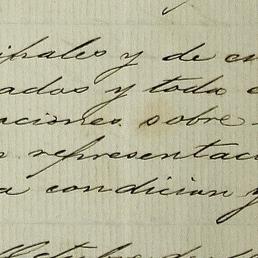 ipales y de cu
ados y toda c
aciones sobre
representaci
a condicion y
Octubre de